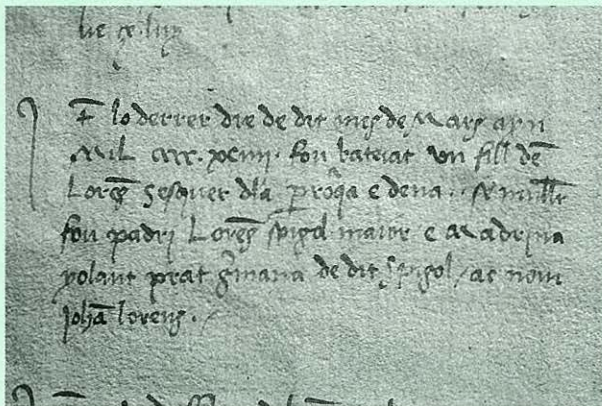 lo derrer die de dit mes de Mars ayn
Mil cccc. xciiii. fou bateiat un fill dē
Lorēs sesquer dla p̄roq̄a e dena..
fou padrj Lorēs spigol maior e Madrina
yolant prat ḡmana de dit spigol / ac nom
johā lorens.